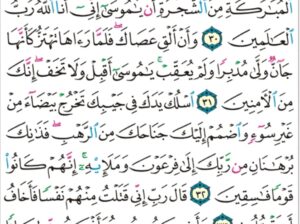 الْمُبَارَكَةِ مِنَ الشَّجَرَةِ أَن يَا مُوسَىٰ إِنِّي أَنَا اللَّهُ رَبُّ
الْعَالَمِينَ ٣٠ وَأَنْ أَلْقِ عَصَاكَ فَلَمَّا رَآهَا تَهْتَزُّ كَأَنَّهَا
جَانٌّ وَلَّىٰ مُدْبِرًا وَلَمْ يُعَقِّبْ يَا مُوسَىٰ أَقْبِلْ وَلَا تَخَفْ إِنَّكَ
مِنَ الْآمِنِينَ ٣١ اسْلُكْ يَدَكَ فِي جَيْبِكَ تَخْرُجْ بَيْضَاءَ مِنْ
غَيْرِ سُوءٍ وَاضْمُمْ إِلَيْكَ جَنَاحَكَ مِنَ الرَّهْبِ فَذَانِكَ
بُرْهَانَانِ مِن رَّبِّكَ إِلَىٰ فِرْعَوْنَ وَمَلَئِهِ إِنَّهُمْ كَانُوا
قَوْمًا فَاسِقِينَ ٣٢ قَالَ رَبِّ إِنِّي قَتَلْتُ مِنْهُمْ نَفْسًا فَأَخَافُ